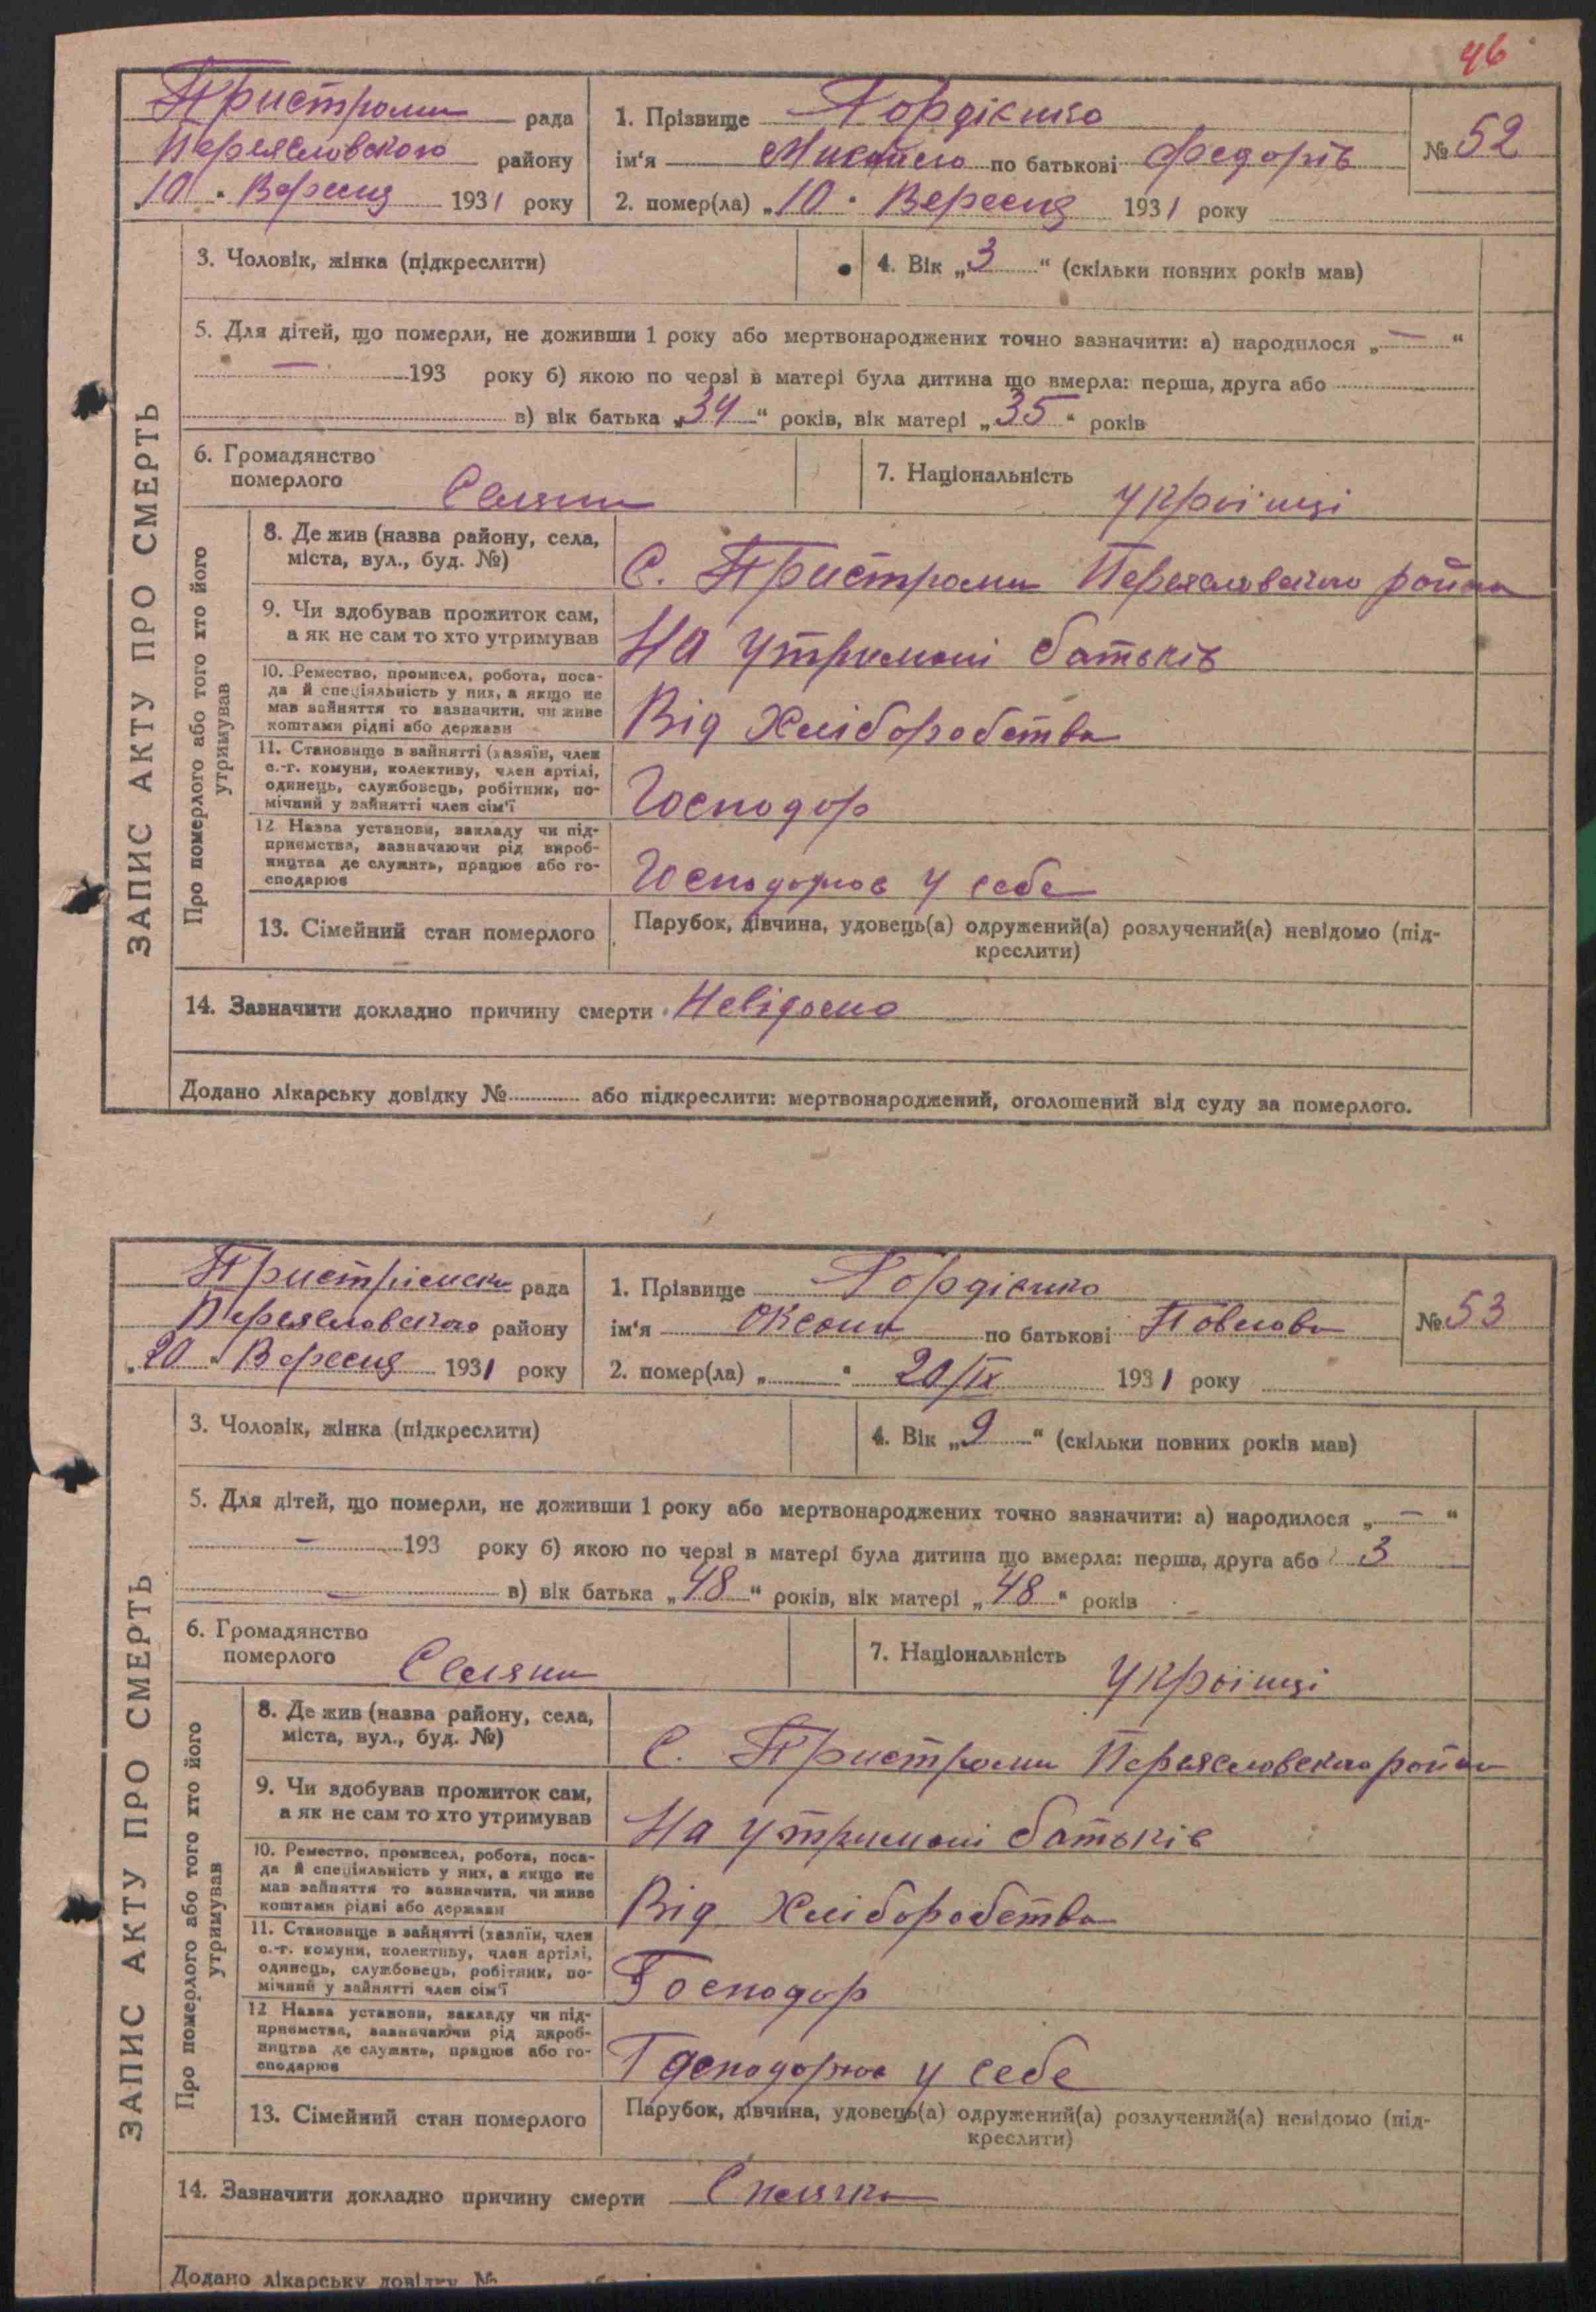 46
Пристроми рада
Переясловского району
„10“ Вересня 1931 року
1. Прізвище Гордієнко
ім'я Микита по батькові Федорів
2. помер(ла) „10“ Вересня 1931 року
№ 52
ЗАПИС АКТУ ПРО СМЕРТЬ
3. Чоловік, жінка (підкреслити)
4. Вік „3“ (скільки повних років мав)
5. Для дітей, що померли, не доживши 1 року або мертвонароджених точно зазначити: а) народилося „—“
— 193 року б) якою по черзі в матері була дитина що вмерла: перша, друга або
в) вік батька „34“ років, вік матері „35“ років
6. Громадянство
померлого Селяни
7. Національність Украінці
Про померлого або того хто його
утримував
8. Де жив (назва району, села,
міста, вул., буд. №)
С. Пристроми Переясловского район
9. Чи здобував прожиток сам,
а як не сам то хто утримував
На утримані батьків
10. Ремество, промисел, робота, поса-
да й спеціяльність у них, а якщо не
мав зайняття то зазначити, чи живе
коштами рідні або держави
Від Хліборобства
11. Становище в зайнятті (хазяїн, член
с.-г. комуни, колективу, член артілі,
одинець, службовець, робітник, по-
мічний у зайнятті член сім'ї
Господор
12 Назва установи, закладу чи під-
приємства, зазначаючи рід вироб-
ництва де служить, працює або го-
сподарює
Господорює у себе
13. Сімейний стан померлого
Парубок, дівчина, удовець(а) одружений(а) розлучений(а) невідомо (під-
креслити)
14. Зазначити докладно причину смерти Невідомо
Додано лікарську довідку № або підкреслити: мертвонароджений, оголошений від суду за померлого.
Пристрімска рада
Переясловского району
„20“ Вересня 1931 року
1. Прізвище Гордієнко
ім'я Оксана по батькові Повлова
2. помер(ла) „ “ 20/IX 1931 року
№ 53
ЗАПИС АКТУ ПРО СМЕРТЬ
3. Чоловік, жінка (підкреслити)
4. Вік „9“ (скільки повних років мав)
5. Для дітей, що померли, не доживши 1 року або мертвонароджених точно зазначити: а) народилося „—“
— 193 року б) якою по черзі в матері була дитина що вмерла: перша, друга або 3
— в) вік батька „48“ років, вік матері „48“ років
6. Громадянство
померлого Селяни
7. Національність Украінці
Про померлого або того хто його
утримував
8. Де жив (назва району, села,
міста, вул., буд. №)
С. Пристроми Переясловского район
9. Чи здобував прожиток сам,
а як не сам то хто утримував
На утримані батьків
10. Ремество, промисел, робота, поса-
да й спеціяльність у них, а якщо не
мав зайняття то зазначити, чи живе
коштами рідні або держави
Від Хліборобства
11. Становище в зайнятті (хазяїн, член
с.-г. комуни, колективу, член артілі,
одинець, службовець, робітник, по-
мічний у зайнятті член сім'ї
Господор
12 Назва установи, закладу чи під-
приємства, зазначаючи рід вироб-
ництва де служить, працює або го-
сподарює
Господорює у себе
13. Сімейний стан померлого
Парубок, дівчина, удовець(а) одружений(а) розлучений(а) невідомо (під-
креслити)
14. Зазначити докладно причину смерти Сплячка
Додано лікарську довідку №